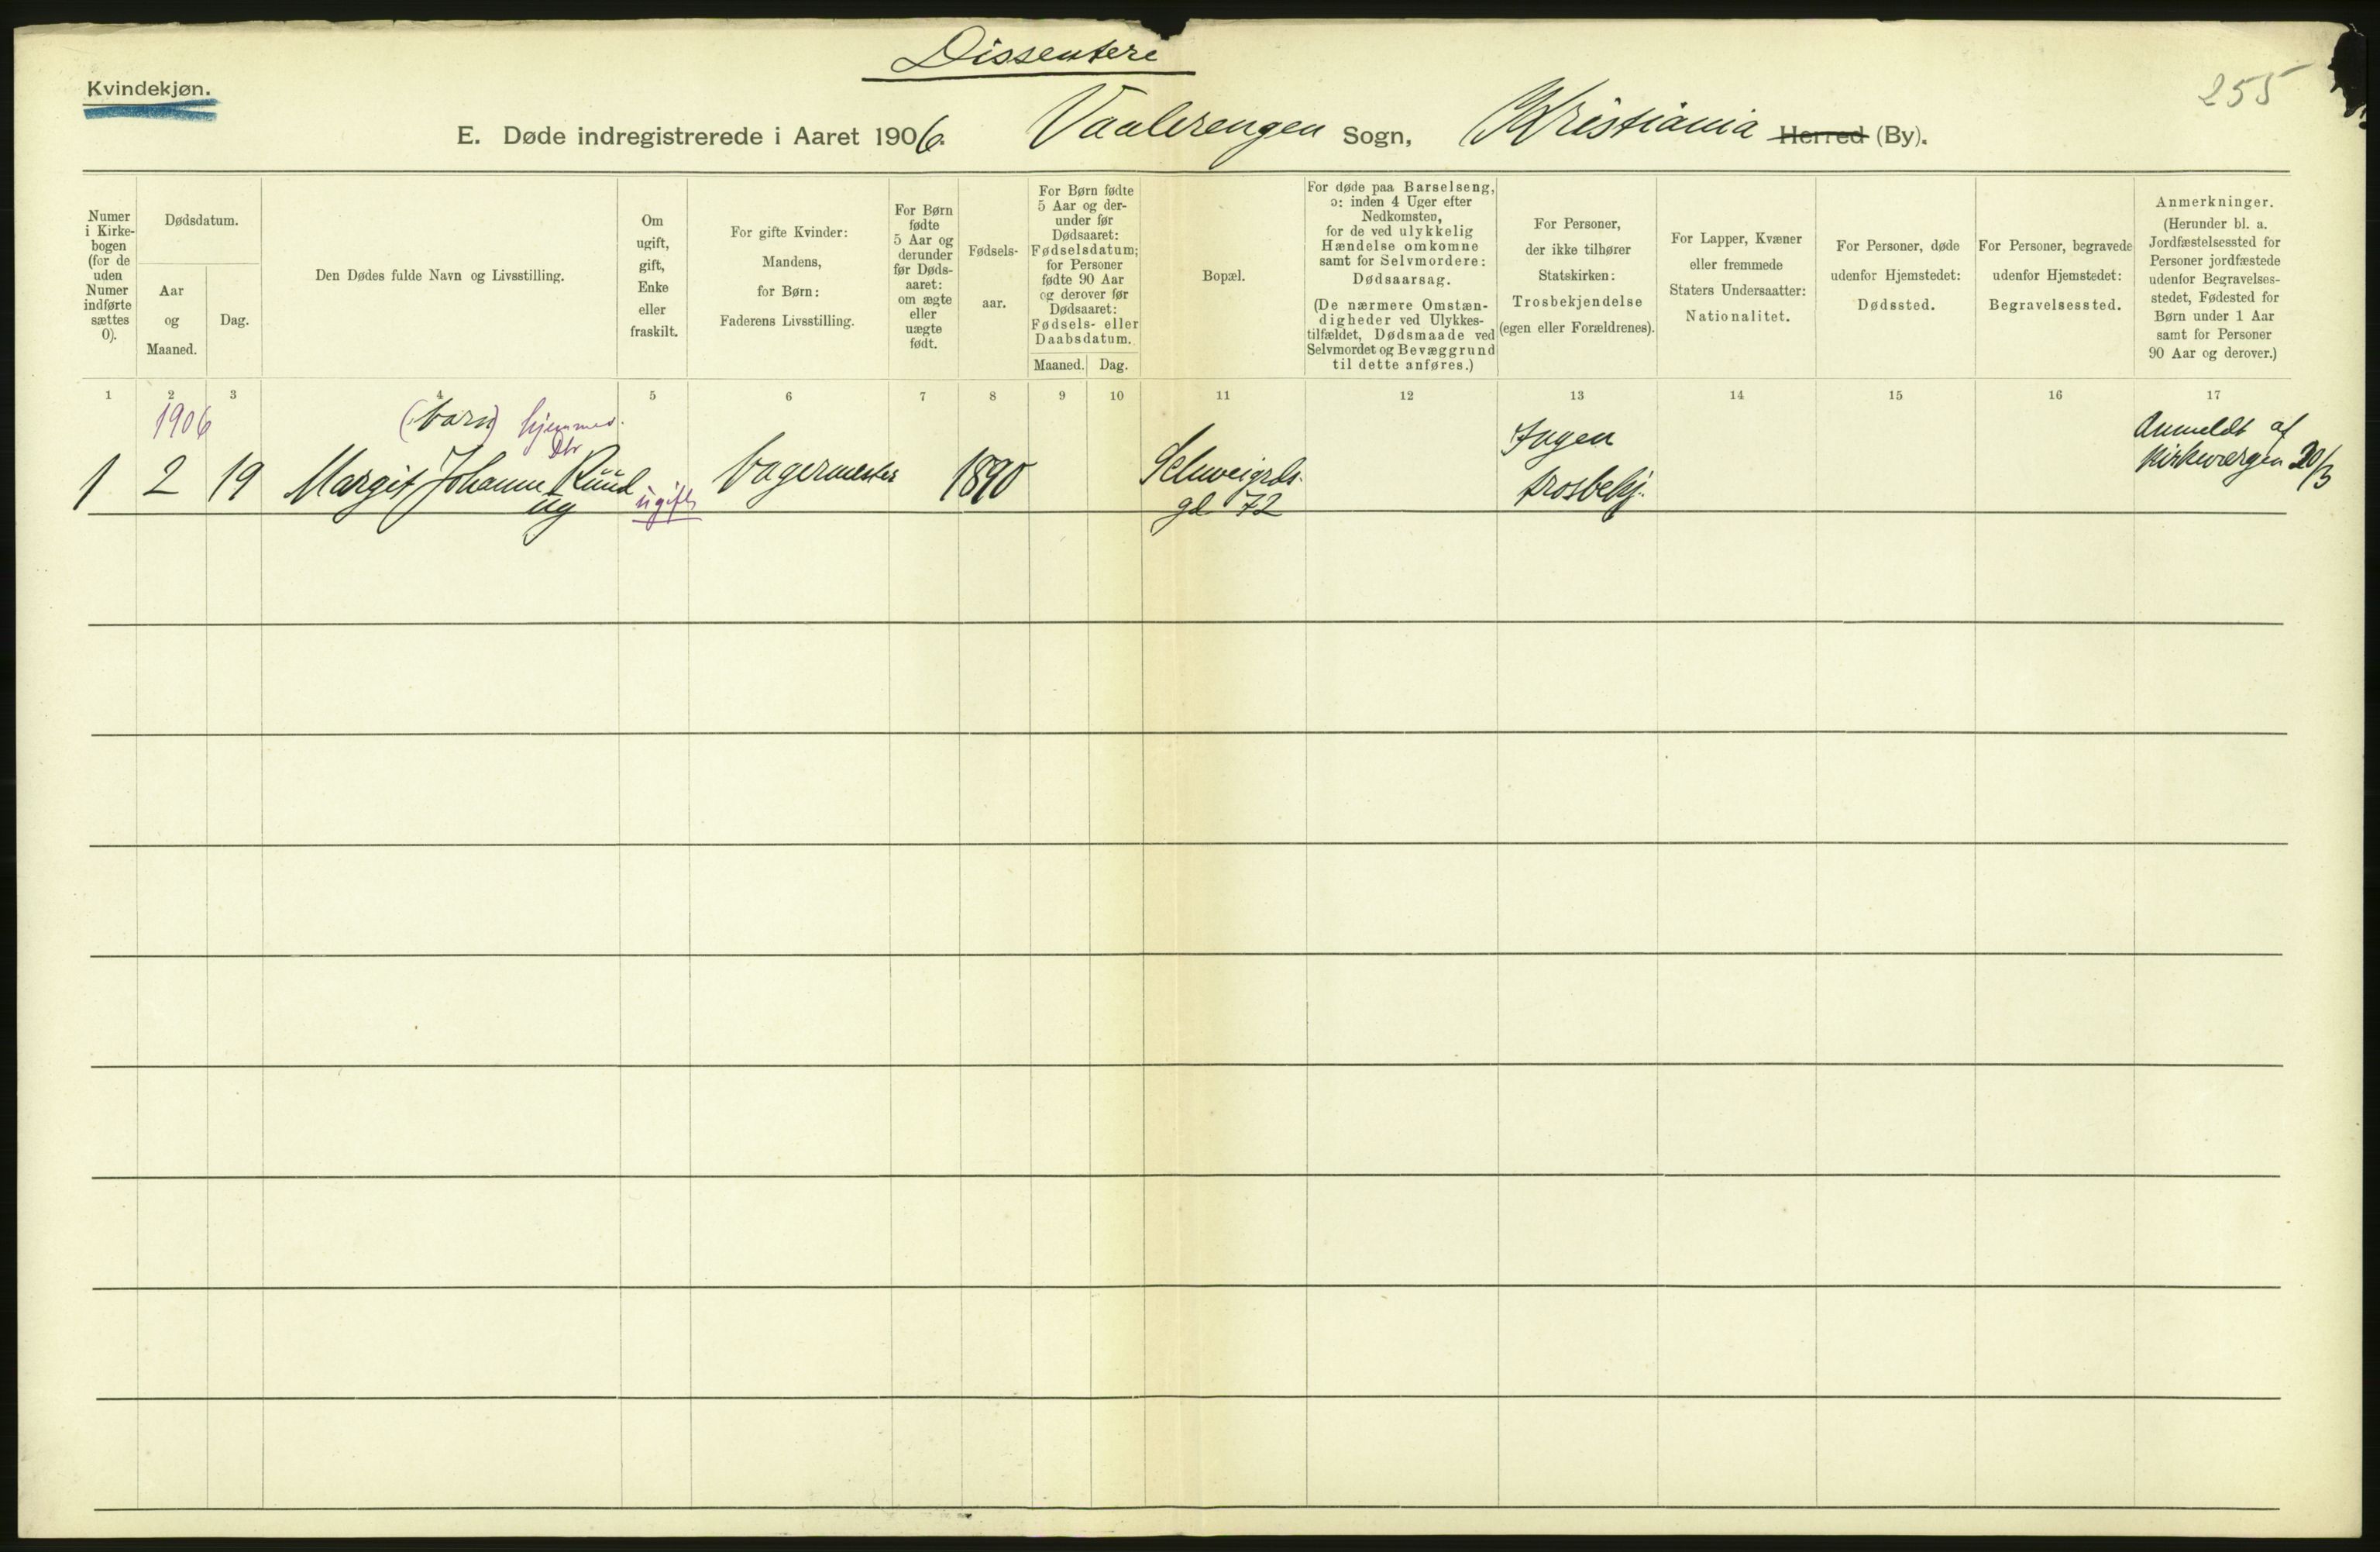 Dissentere
Kvindekjøn.
255
E. Døde indregistrerede i Aaret 1906. Vaalerengen Sogn, Kristiania Herred (By).
Numer
i Kirke-
bogen
(for de
uden
Numer
indførte
sættes
0).
Dødsdatum.
Aar
og
Maaned.
Dag.
Den Dødes fulde Navn og Livsstilling.
Om
ugift,
gift,
Enke
eller
fraskilt.
For gifte Kvinder:
Mandens,
for Børn:
Faderens Livsstilling.
For Børn
fødte
5 Aar og
derunder
før Døds-
aaret:
om ægte
eller
uægte
født.
Fødsels-
aar.
For Børn fødte
5 Aar og der-
under før
Dødsaaret:
Fødselsdatum;
for Personer
fødte 90 Aar
og derover før
Dødsaaret:
Fødsels- eller
Daabsdatum.
Maaned.
Dag.
Bopæl.
For døde paa Barselseng,
ɔ: inden 4 Uger efter
Nedkomsten,
for de ved ulykkelig
Hændelse omkomne
samt for Selvmordere:
Dødsaarsag.
(De nærmere Omstæn-
digheder ved Ulykkes-
tilfældet, Dødsmaade ved
Selvmordet og Bevæggrund
til dette anføres.)
For Personer,
der ikke tilhører
Statskirken:
Trosbekjendelse
(egen eller Forældrenes).
For Lapper, Kvæner
eller fremmede
Staters Undersaatter:
Nationalitet.
For Personer, døde
udenfor Hjemstedet:
Dødssted.
For Personer, begravede
udenfor Hjemstedet:
Begravelsessted.
Anmerkninger.
(Herunder bl. a.
Jordfæstelsessted for
Personer jordfæstede
udenfor Begravelses-
stedet, Fødested for
Børn under 1 Aar
samt for Personer
90 Aar og derover.)
1 2 3 4 5 6 7 8 9 10 11 12 13 14 15 16 17
1906
(barn) hjemmev.
Dtr
1 2 19 Margit Johanne Ruud
ug
ugift
Vagermester
1890
Schweigrds.
gd 72
Ingen
trosbekj.
Anmeldt af
Kirkevergen 20/3